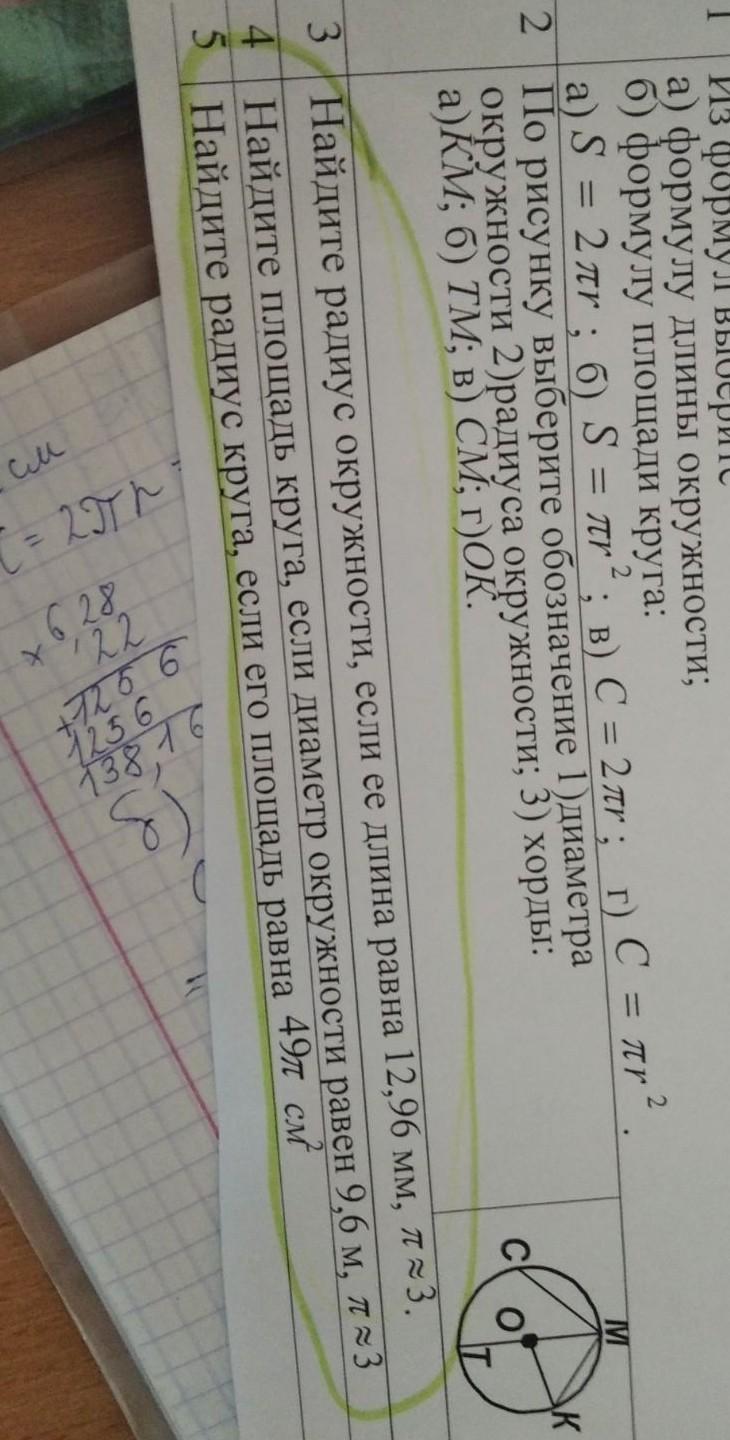 1 Из формул выберите
а) формулу длины окружности;
б) формулу площади круга:
а) S = 2πr ; б) S = πr² ; в) C = 2πr ; г) C = πr² .
2 По рисунку выберите обозначение 1)диаметра
окружности 2)радиуса окружности; 3) хорды:
а)КМ; б) ТМ; в) СМ; г)ОК.
М
С
О
К
Т
3 Найдите радиус окружности, если ее длина равна 12,96 мм, π≈3.
4 Найдите площадь круга, если диаметр окружности равен 9,6 м, π≈3
5 Найдите радиус круга, если его площадь равна 49π см²
см
C = 2πr
6,28
× 22
1256
+1256
138,16